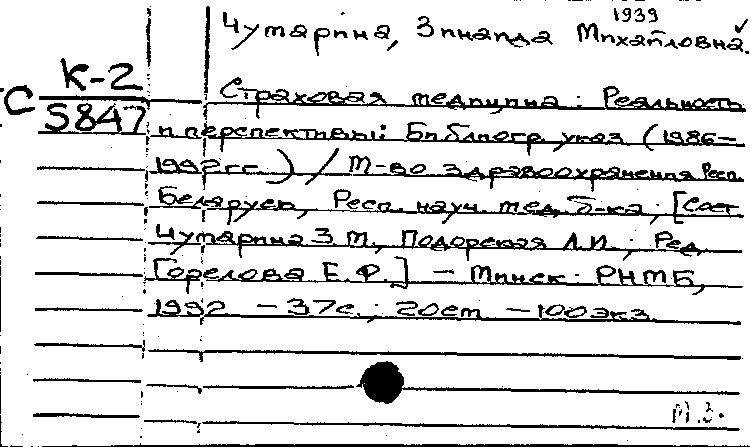 1939
Чумарина, Зинаида Михайловна.
К-2
С
5847
Страховая медицина: Реальность
и перспективы: Библиогр. указ (1986–
1992 гг.) / М-во здравоохранения Респ.
Беларусь, Респ. науч. мед. б-ка; [Сост.
Чумарина З.М., Подорская Л.И.; Ред.
Горелова Е.Ф.] – Минск: РНМБ,
1992. – 37с.; 20см. – 100 экз.
М.З.